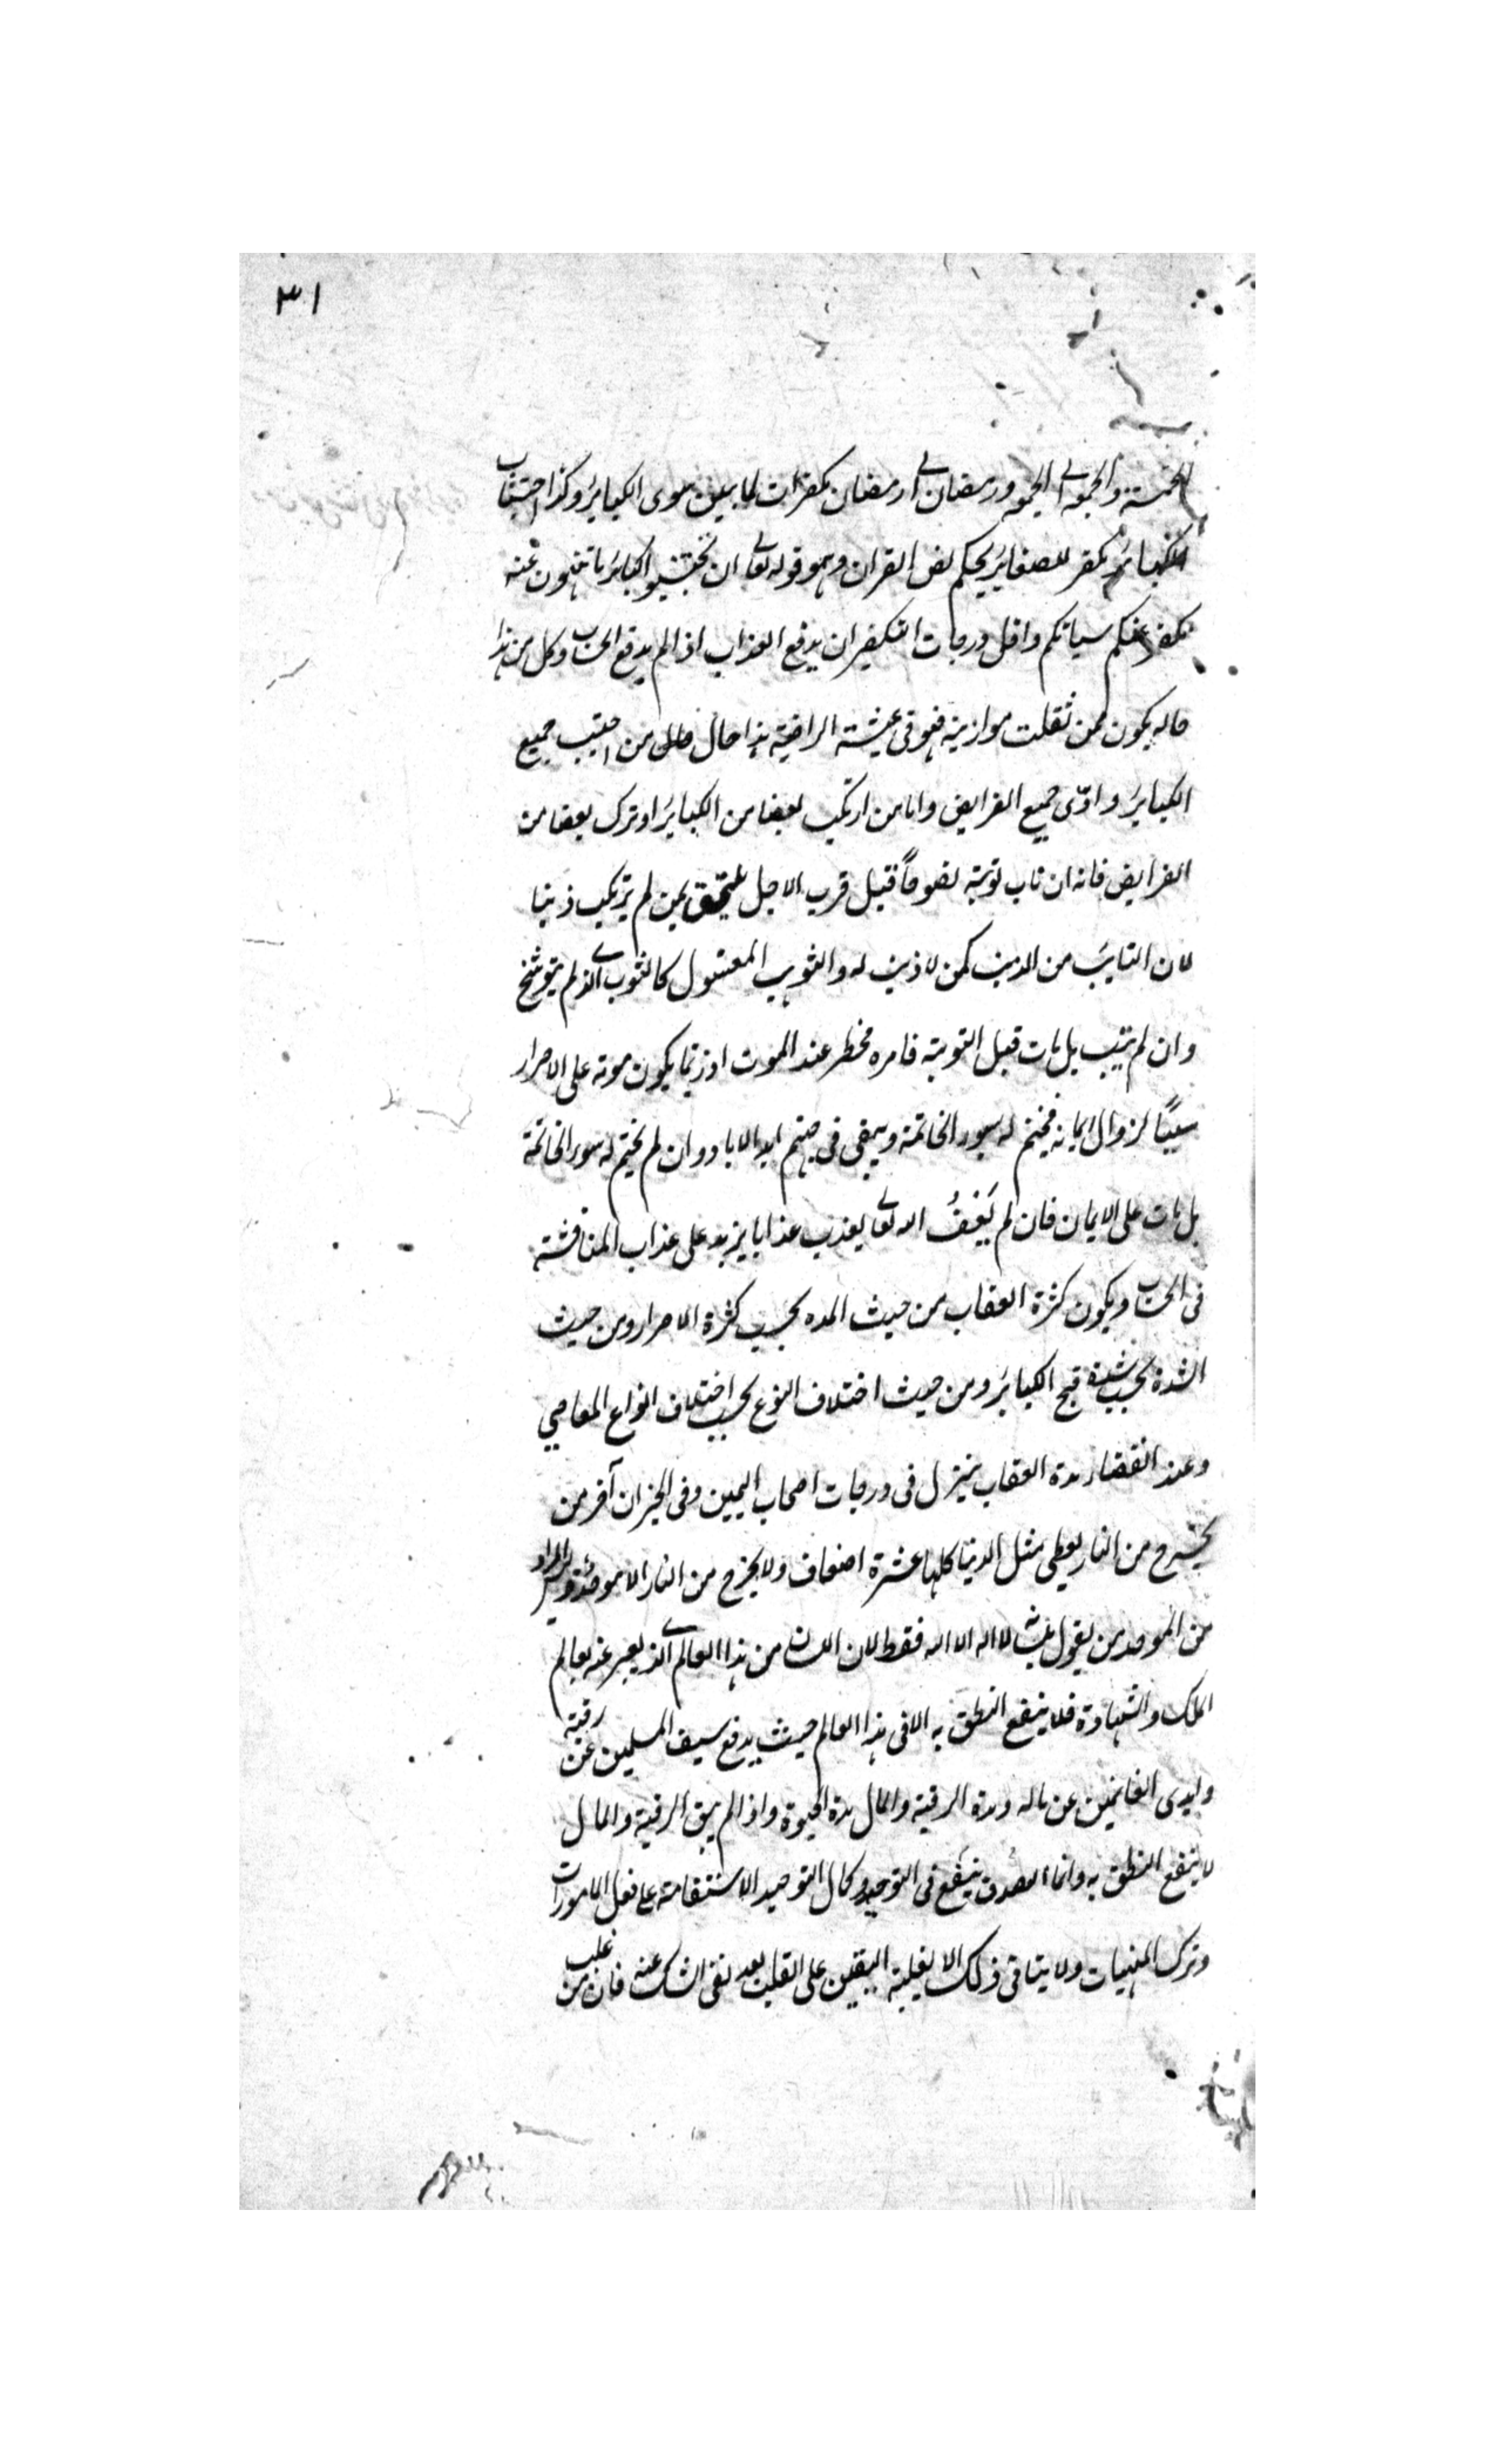 ٣١
الخمسة والجمعة الى الجمعة ورمضان الى رمضان مكفرات لما بينهن سوى الكبائر وكذا اجتناب
الكبائر مكفر للصغائر بحكم نص القران وهو قوله تعالى ان تجتنبوا كبائر ما تنهون عنه
نكفر عنكم سياتكم واقل درجات التكفير ان يدفع العذاب اذا لم يدفع الحساب وكل من هذا
حاله يكون ممن ثقلت موازينه فهو فى عيشة الراضية هذا حال من اجتنب جميع
الكبائر وادّى جميع الفرايض واما من ارتكب بعضا من الكبائر او ترك بعضا من
الفرايض فانه ان تاب توبة نصوحاً قبل قرب الاجل يلتحق بمن لم يرتكب ذنبا
لان التايب من الذنب كمن لا ذنب له والثوب المغسول كالثوب الذى لم يتوسخ
وان لم يتب بل مات قبل التوبة فامره مخطر عند الموت اذ ربما يكون موته على الاصرار
سبباً لزوال ايمانه فيختم له بسوء الخاتمة ويبقى فى جهنم ابد الاباد وان لم يختم له بسوء الخاتمة
بل مات على الايمان فان لم يَعْفُ الله تعالى يعذب عذابا يزيد على عذاب المناقشة
فى الحساب ويكون كثرة العقاب من حيث المده بحسب كثرة الاصرار ومن حيث
الشدة بحسب شدة قبح الكبائر ومن حيث اختلاف النوع بحسب اختلاف انواع المعاصي
وعند انقضاء مدة العقاب ينزل فى درجات اصحاب اليمين وفى الخبر ان آخر من
يخرج من النار يعطى مثل الدنيا كلها عشرة اضعاف ولا يخرج من النار الا موحد وليس المراد
من الموحد من يقول بلسانه لا اله الا الله فقط لان اللسان من هذا العالم الذى يعبر عنه بعالم
الملك والشهادة فلا ينفع النطق به الا فى هذا العالم حيث يدفع سيف المسلمين عن رقبته
وايدى الغانمين عن ماله ومدة الرقبة والمال مدة الحيوة واذا لم يبق الرقبة والمال
لا ينفع النطق به وانما الصدق ينفع فى التوحيد وكمال التوحيد الاستقامة على فعل المامورات
وترك المنهيات ولا يتاتى ذلك الا بغلبة اليقين على القلب بعد نفى الشك عنه فان من غلب